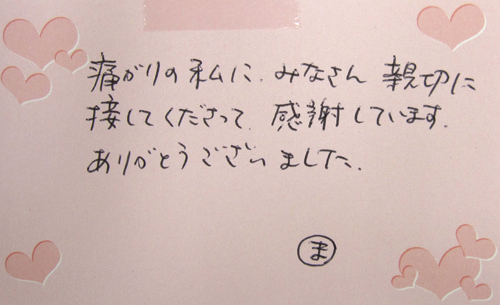 痛がりの私に、みなさん 親切に
接してくださって、感謝しています。
ありがとうございました。
ま